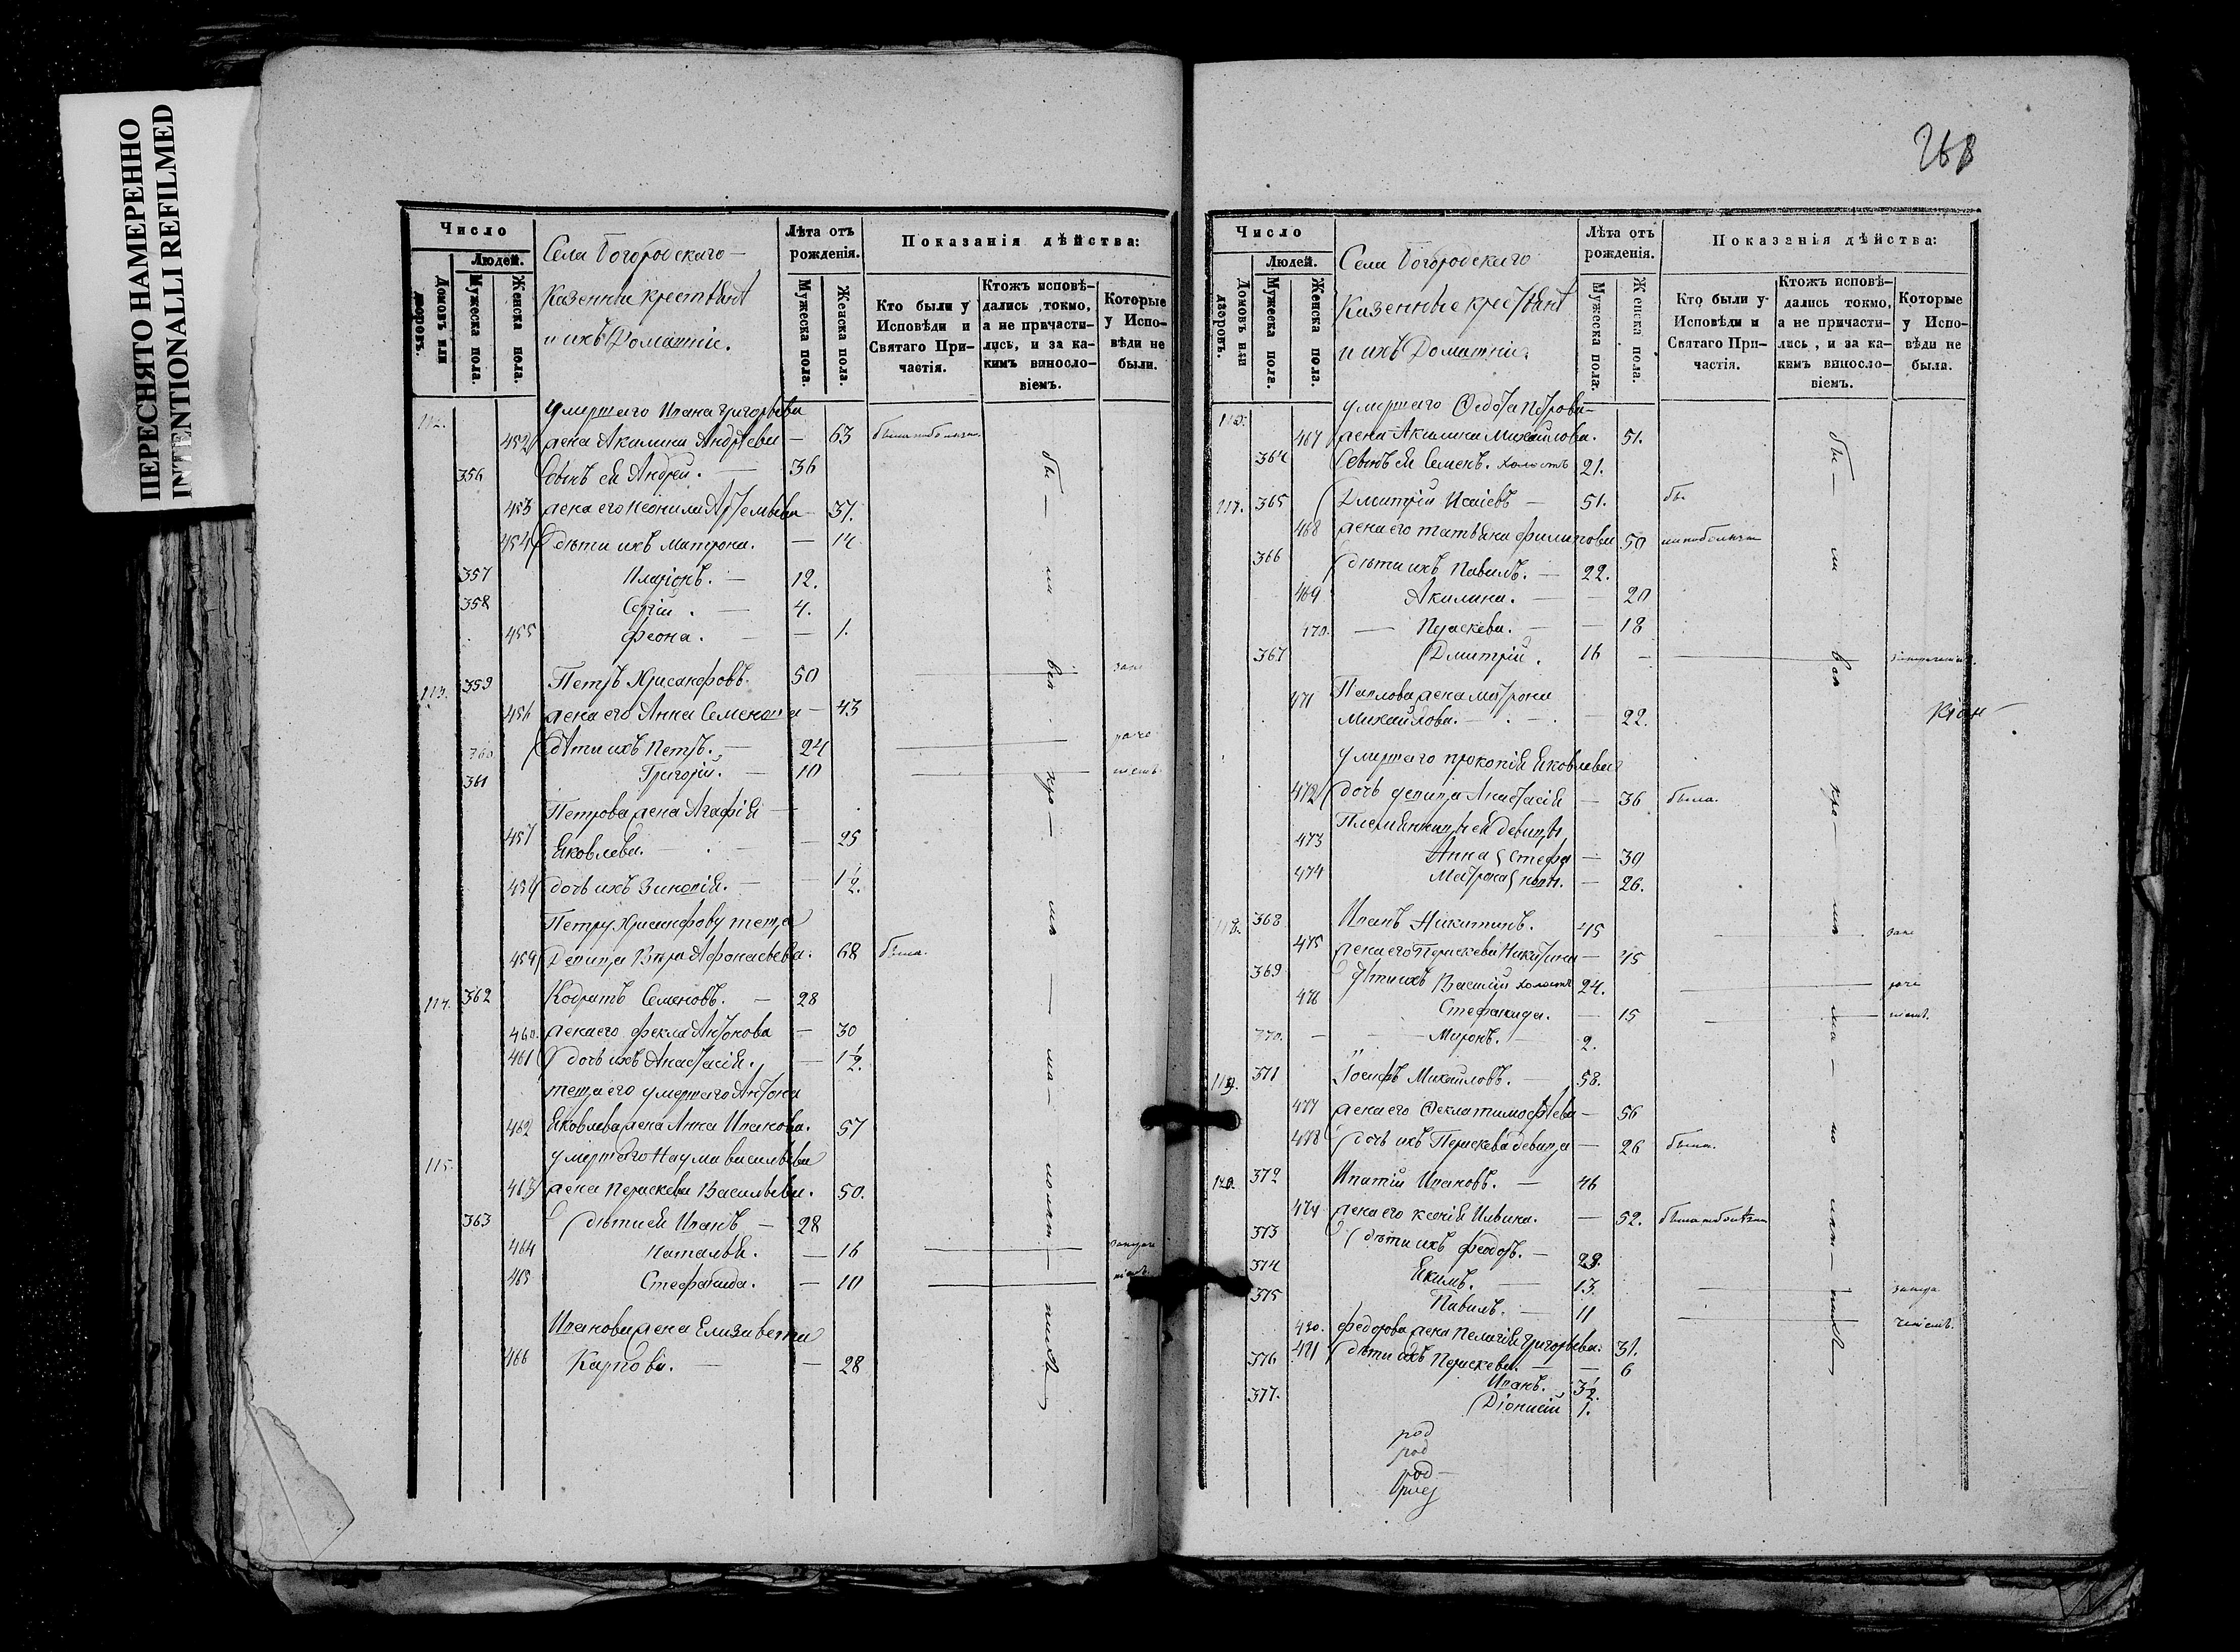 ПЕРЕСНЯТО НАМЕРЕННО
INTENTIONALLI REFILMED
Число
Людей.
Домовъ или дворовъ.
Мужеска пола.
Женска пола.
Села Богородскаго
Казенные крестьяне
и ихъ Домашніи.
Лѣта отъ рожденія.
Мужеска пола.
Женска пола.
Показанія дѣйства:
Кто были у Исповѣди и Святаго Причастія.
Ктожъ исповѣдались токмо, а не причастились, и за какимъ винословіемъ.
Которые у Исповѣди не были.
112. умершаго Ивана Григорьева
452 жена Акилина Андреева — 63
356 Сынъ ея Андрей. — 36
453 жена его Неонила Артемьева — 37.
454 дѣти ихъ Матрона. — 14
357 Иларіонъ. — 12.
358 Сергій. — 4.
455 Феона. — 1.
113. 359 Петръ Хрисанфовъ. 50
456 жена его Анна Семенова — 43
360 дѣти ихъ Петръ. — 24
361 Григорій. — 10
Петрова жена Агафія
457 Яковлева. — 25
458 дочь ихъ Зиновія. — 1 1/2.
Петру Хрисанфову теща
459 Девица Вѣра Афонасьева. 68 была.
114. 362 Кодратъ Семеновъ. — 28
460. жена его Фекла Антонова — 30
461 дочь ихъ Анастасія. — 1 1/2.
теща его умершаго Антона
462 Яковлева жена Анна Иванова. 57
115. умершаго Наума Васильева
463 жена Параскева Васильева. 50.
363 дѣти ея Иванъ — 28
464 Наталья. — 16
465 Стефанида. — 10
Иванова жена Елизавета
466 Карпова. — 28
268
Число
Людей.
Домовъ или дворовъ.
Мужеска пола.
Женска пола.
Села Богородскаго
Казенные крестьяне
и ихъ Домашніи.
Лѣта отъ рожденія.
Мужеска пола.
Женска пола.
Показанія дѣйства:
Кто были у Исповѣди и Святаго Причастія.
Ктожъ исповѣдались токмо, а не причастились, и за какимъ винословіемъ.
Которые у Исповѣди не были.
умершаго Федота Петрова
467 жена Акилина Михайлова. 51.
364 Сынъ ея Семенъ. холостъ 21.
117. 365 Дмитрій Исаіевъ — 51.
468 жена его Татьяна Филипова 50
366 дѣти ихъ Павилъ. — 22.
469 Акилина. — 20
470. Параскева. — 18
367 Дмитрій. 16
471 Павлова жена Матрона
Михайлова. — 22.
умершаго Прокопія Яковлева
472 дочь девица Анастасія — 36 была.
Племянницы ей девицы,
473 Анна Стефа — 30
474 Матрона — 26.
118. 368 Иванъ Никитинъ. 45
475 жена его Параскева Никитина — 45
369 дѣти ихъ Василій холостъ 24.
476 Стефанида. — 15
370. Миронъ. 2.
119. 371 Іосифъ Михайловъ. — 58.
477 жена его Фекла Тимофѣева — 56
478 дочь ихъ Параскева девица — 26 была.
120. 372 Ипатій Ивановъ. — 46
479 жена его Ксенія Ильина. — 52.
373 дѣти ихъ Феодоръ. — 29.
374 Якимъ. — 13.
375 Павилъ. — 11
480. Федорова жена Пелагія Григорьева. 31.
481 дѣти ихъ Параскева. — 6
376 Иванъ. 3 1/2.
377. Діонисій 1.
род
род
род